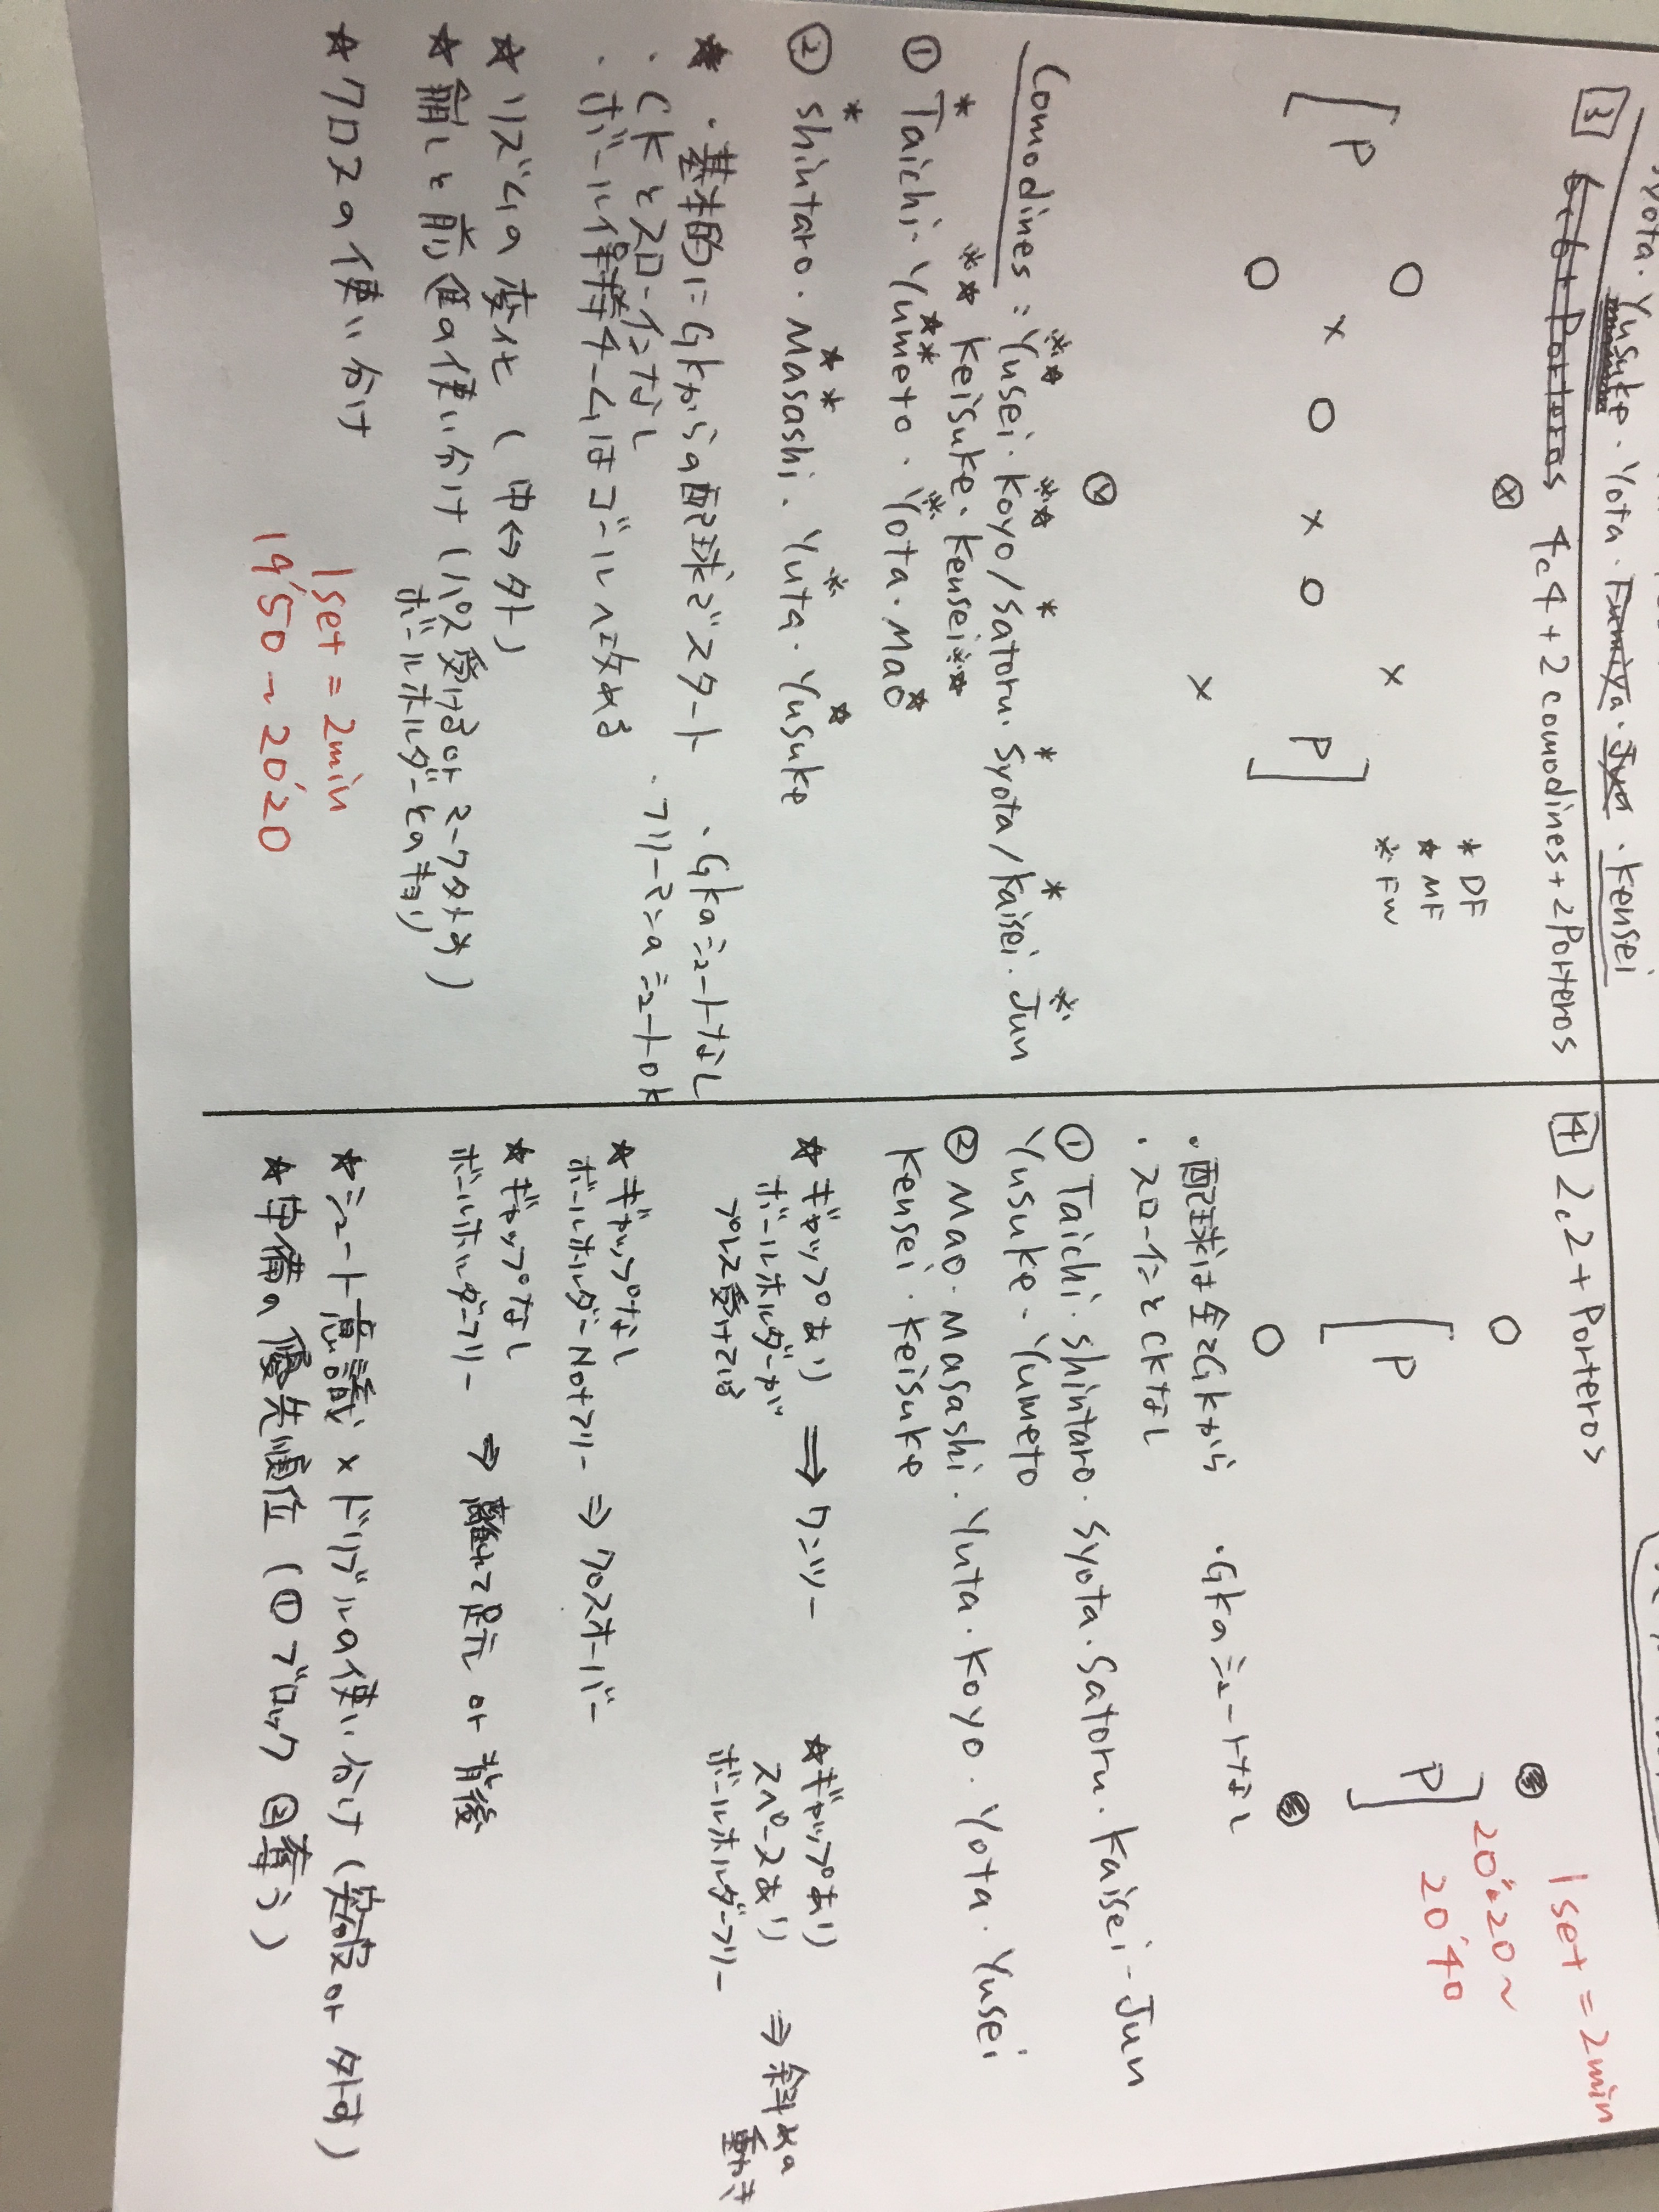 Syota・Yusuke・Yota・Fumiya・Jun・Kensei
3 6c6+Porteros 4c4+2comodines+2Porteros
* DF
★ MF
※ FW
P
P
Comodines : Yusei・Koyo/Satoru・Syota/Kaisei・Jun
Keisuke・Kensei
① Taichi・Yumeto・Yota・Mao
② Shintaro・Masashi・Yuta・Yusuke
★・基本的にGKからの配球でスタート
・GKのシュートなし
・CKとスローインなし
・フリーマンのシュートOK
・ボール保持チームはゴールへ攻める
★リズムの変化 (中⇔外)
★崩しと前進の使い分け (パス受けるorマークタメ)
ボールホルダーとのキョリ
★クロスの使い分け
1set=2min
19'50~20'20
4 2c2+Porteros
1set=2min
20'20~
20'40
P
P
・配球は全てGKから
・GKのシュートなし
・スローインとCKなし
①Taichi・Shintaro・Syota・Satoru・Kaisei-Jun
Yusuke・Yumeto
②Mao・Masashi・Yuta・Koyo・Yota・Yusei
Kensei・Keisuke
★ギャップあり ⇒ ワンツー
ボールホルダーが
プレス受けてる
★ギャップあり
スペースあり
ボールホルダーフリー
⇒ 斜めの
動き
★ギャップなし
ボールホルダーNotフリー ⇒ クロスオーバー
★ギャップなし
ボールホルダーフリー ⇒ 離れて足元 or 背後
★シュート意識×ドリブルの使い分け (突破or外す)
★守備の優先順位 (①ブロック ②奪う)